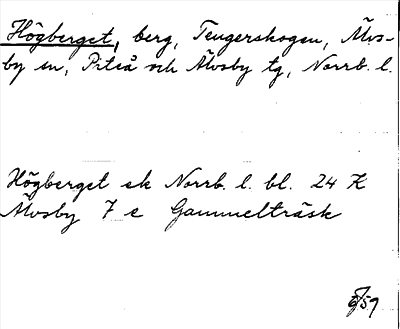 Högberget, berg, Teugerskogen, Älvs-
by sn, Piteå och Älvsby tg, Norrb. l.
Högberget ek Norrb. l. bl. 24 K
Älvsby 7 e Gammelträsk
/59